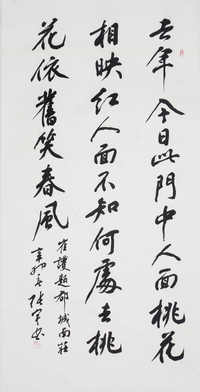 去年今日此門中人面桃花
相映红人面不知何處去桃
花依舊笑春風
崔護題都城南莊